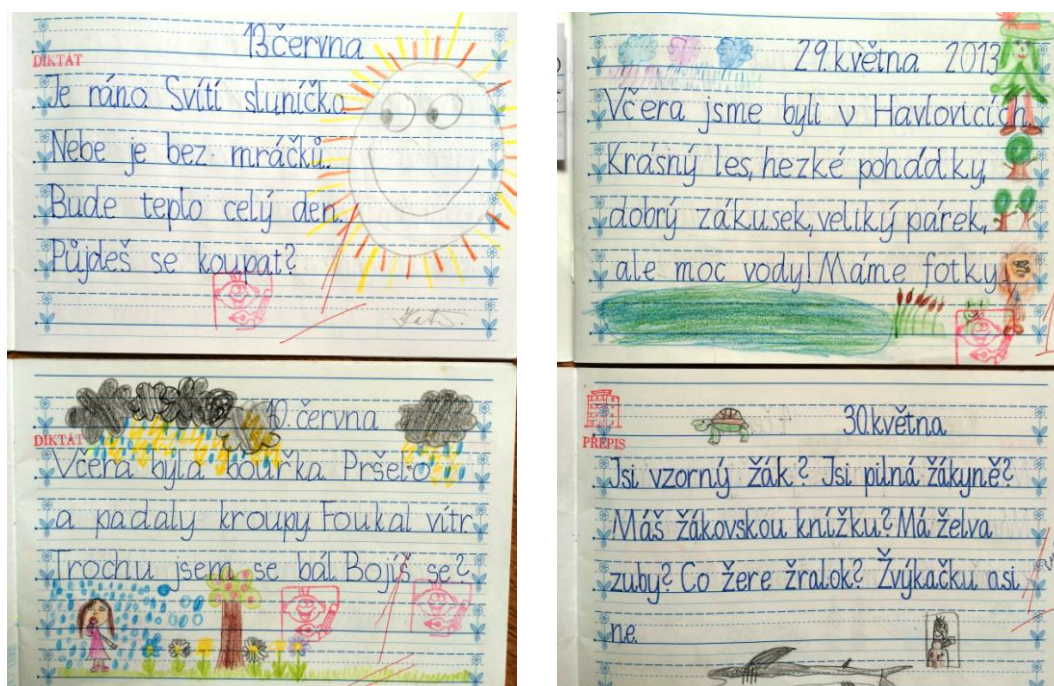 13. června
DIKTÁT
Je ráno. Svítí sluníčko.
Nebe je bez mráčků.
Bude teplo celý den.
Půjdeš se koupat?
10. června
DIKTÁT
Včera byla bouřka. Pršelo
a padaly kroupy. Foukal vítr.
Trochu jsem se bál. Bojíš se?
29. května 2013
Včera jsme byli v Havlovicích.
Krásný les, hezké pohádky,
dobrý zákusek, veliký párek,
ale moc vody! Máme fotky.
30. května
PŘEPIS
Jsi vzorný žák? Jsi pilná žákyně?
Máš žákovskou knížku? Má želva
zuby? Co žere žralok? Žvýkačku asi
ne.